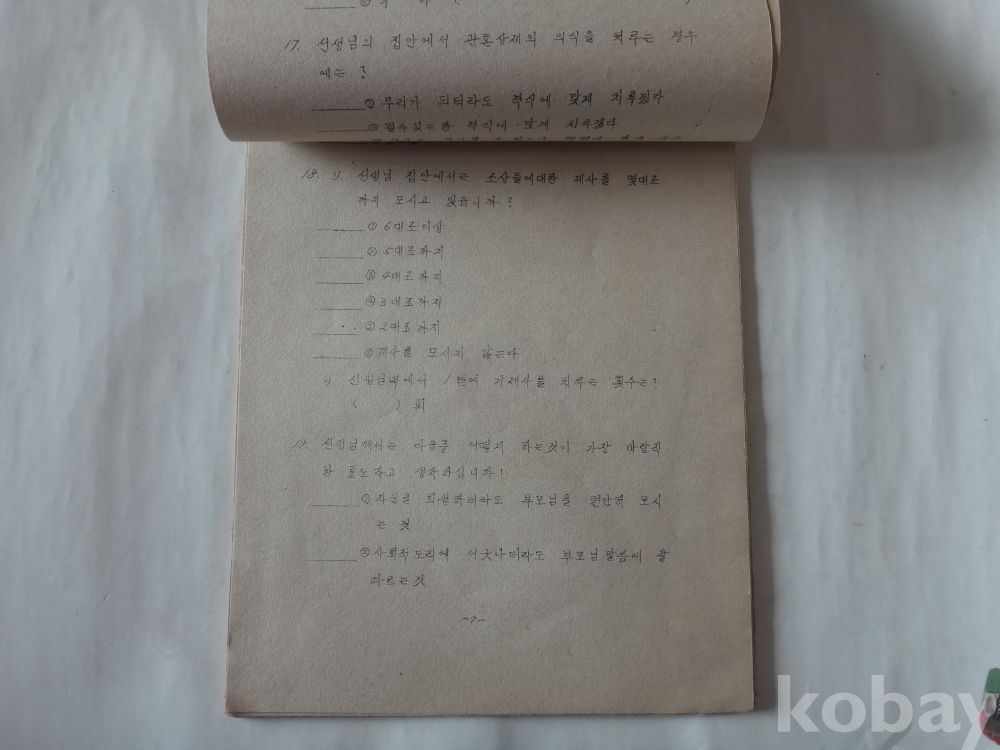 ② 기 타 (            )
17. 선생님의 집안에서 관혼상제의 의식을 치루는 경우
에는 ?
① 무리가 되더라도 격식에 맞게 치루겠다
② 될수있는한 격식에 맞게 치루겠다
18. 선생님 집안에서는 조상들에대한 제사를 몇대조
까지 모시고 있읍니까 ?
① 6대조이상
② 5대조까지
③ 4대조까지
④ 3대조까지
⑤ 2대조까지
⑥ 제사를 모시지 않는다
선생님댁에서 1년에 기제사를 치루는 횟수는?
(      ) 회
19. 선생님께서는 다음중 어떻게 하는것이 가장 바람직
한 효도라고 생각하십니까?
① 자신을 희생하더라도 부모님을 편안히 모시
는 것
② 사회적도리에 어긋나더라도 부모님말씀에 잘
따르는것
-7-
kobay